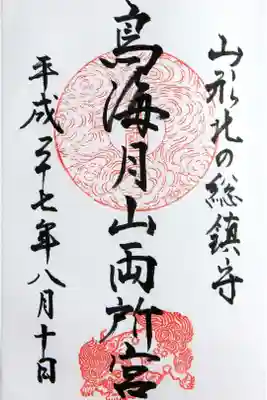 山形北の総鎮守
鳥海月山両所宮
平成二十七年八月十日